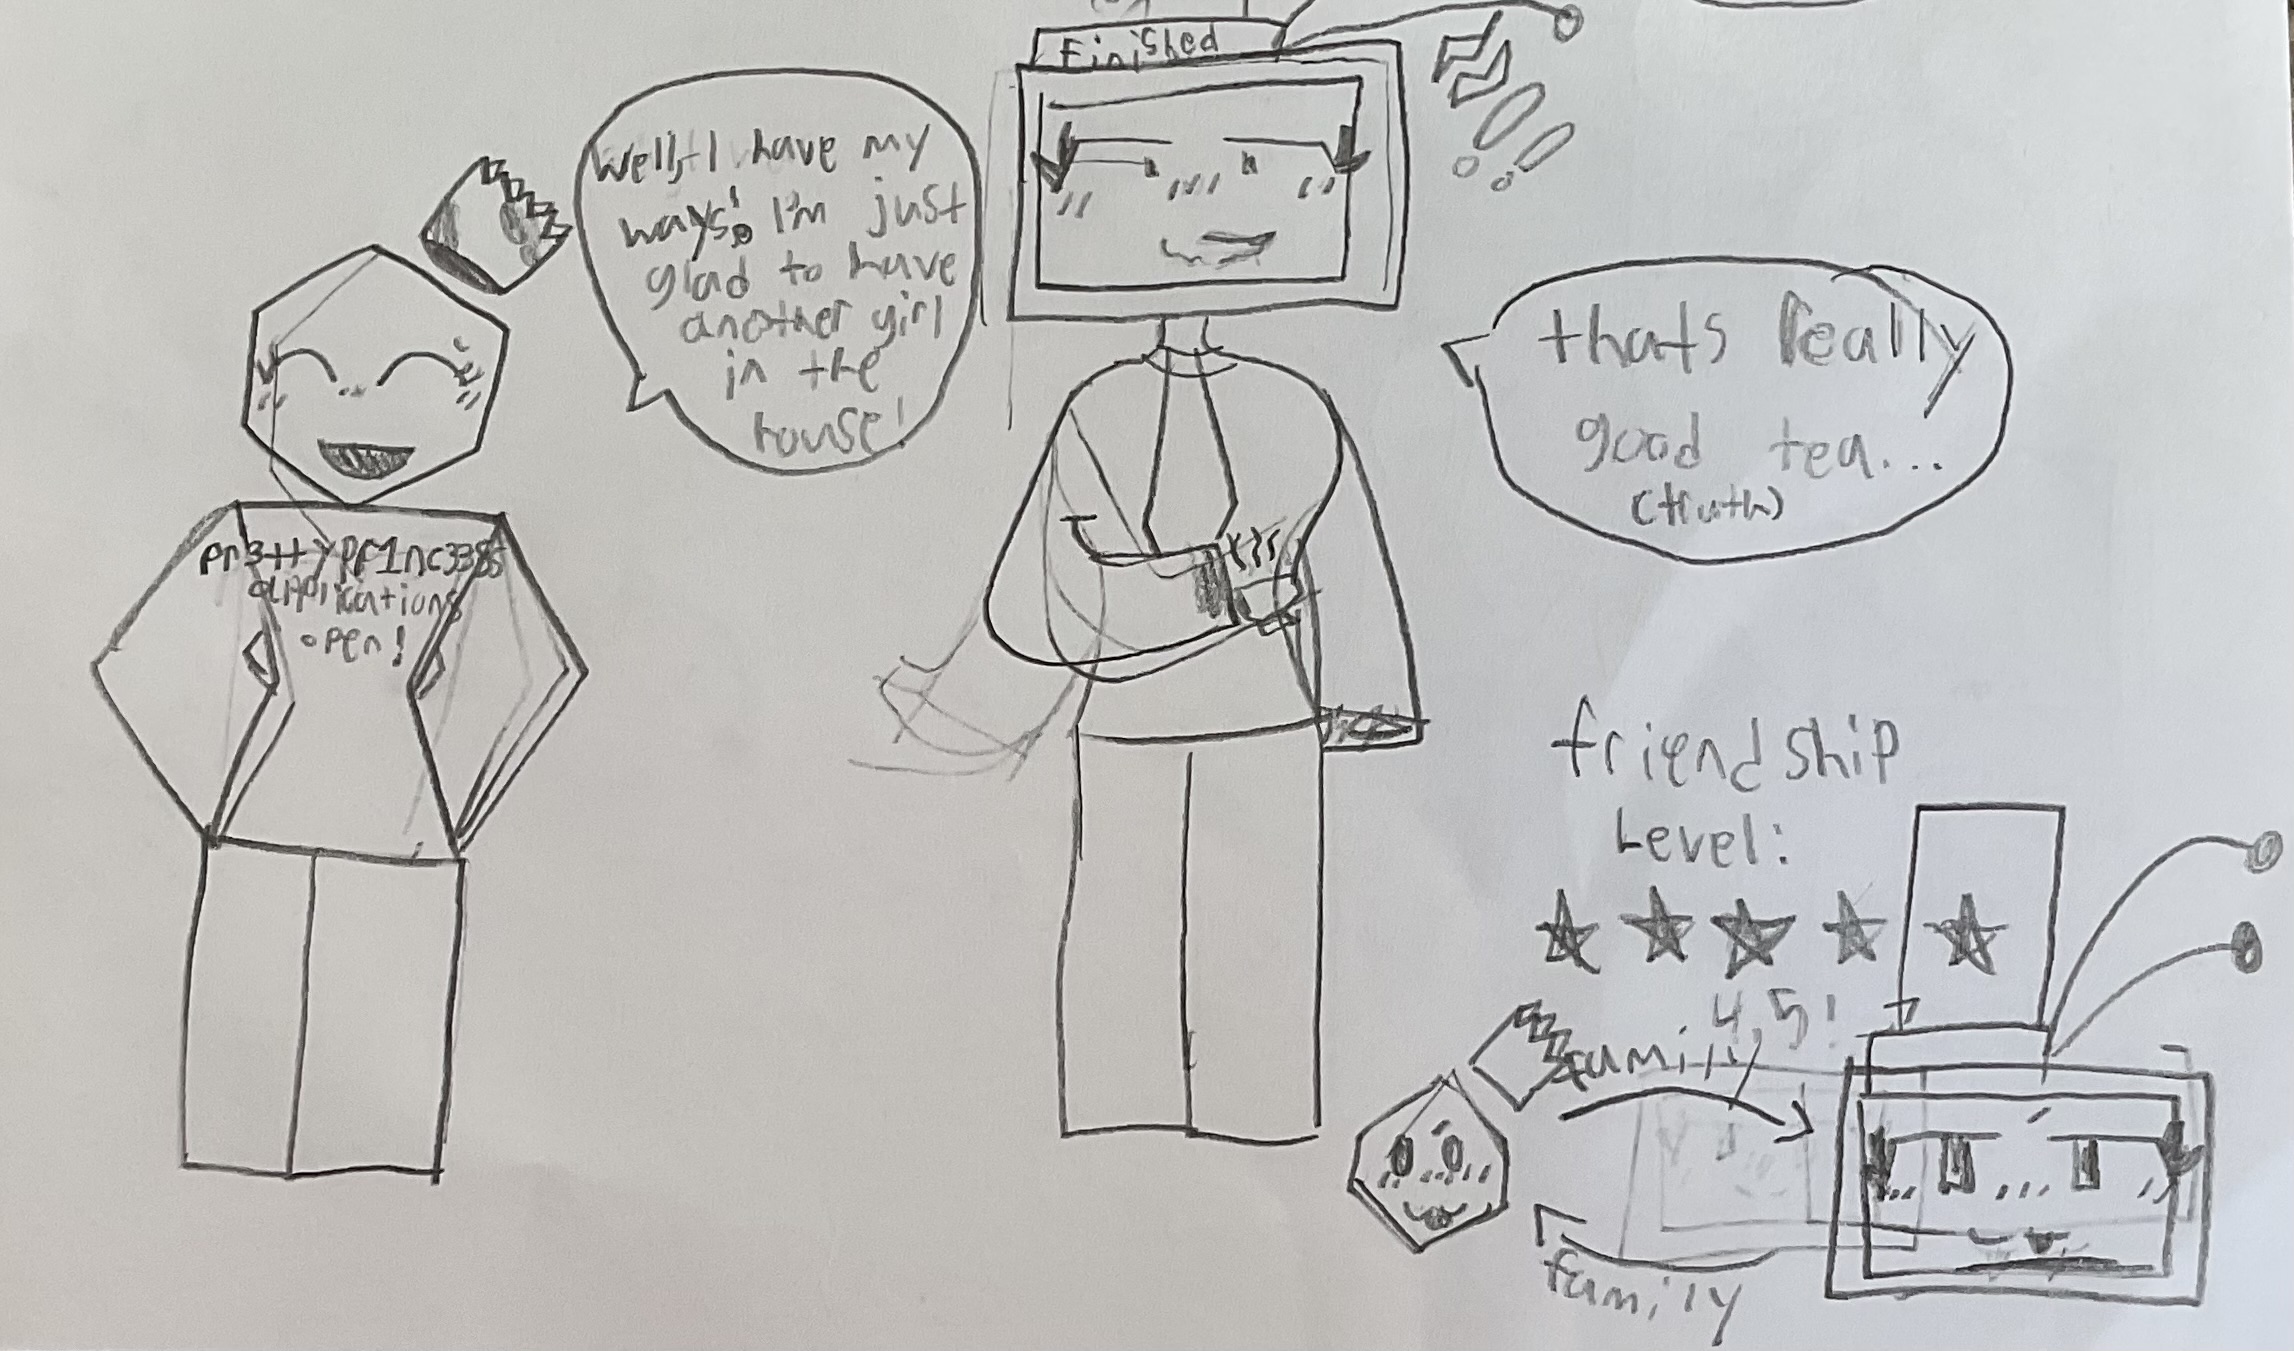 Finished
Well, I have my
ways! I'm just
glad to have
another girl
in the
house!
thats Really
good tea...
(truth)
pr3ttyprinc338s
applications
open!
friendship
Level:
4,5!
family
family